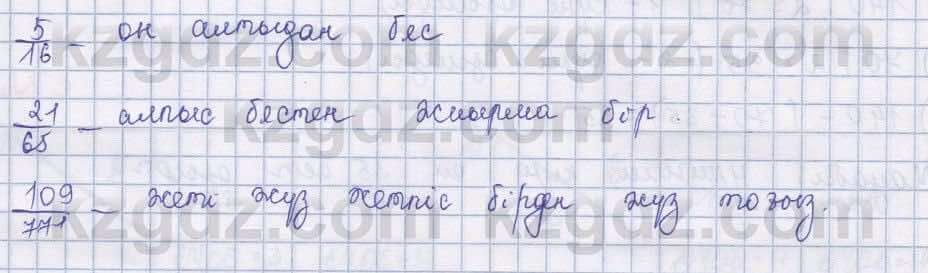 5/16 – он алтыдан бес
kzgdz.com kzgdz.com
21/65 – алпыс бестен жиырма бір.
kzgdz.com kzgdz.com
109/771 – жеті жүз жетпіс бірден жүз тоғыз.
kzgdz.com kzgdz.com